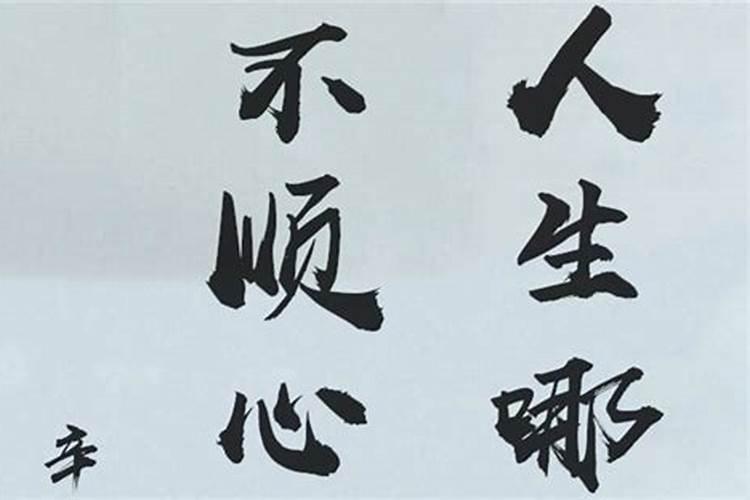 人生哪
不顺心
辛